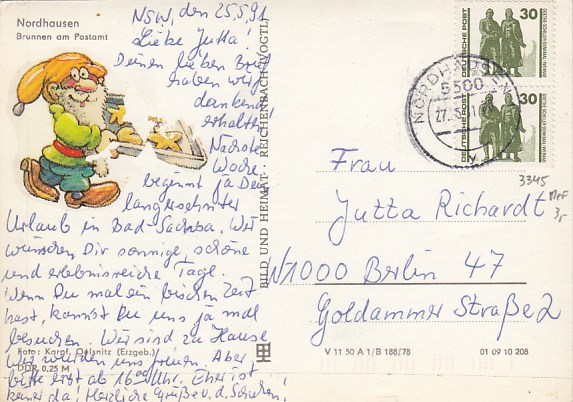 Nordhausen
Brunnen am Postamt
NSW, den 25.5.91
Liebe Jutta!
Deinen lieben Brief
haben wir
dankend
erhalten.
Nächste
Woche
beginnt ja Dein
langersehnter
Urlaub in Bad-Sachsa. Wir
wünschen Dir sonnige, schöne
und erlebnisreiche Tage.
Wenn Du mal ein bischen Zeit
hast, kannst Du uns ja mal
besuchen. Wir sind zu Hause
Wir würden uns freuen. Aber
bitte erst ab 16.00 Uhr. Eher ist
keiner da! Herzliche Grüße v. d.
Foto: Karpf, Oelsnitz (Erzgeb.)
DDR 0,25 M
BILD UND HEIMAT · REICHENBACH (VOGTL)
DEUTSCHE POST
30
GOETHE-SCHILLER-DENKMAL WEIMAR
DEUTSCHE POST
30
GOETHE-SCHILLER-DENKMAL WEIMAR
NORDHAUSEN
5500
27.5.
Frau
Jutta Richardt
W1000 Berlin 47
Goldammer Straße 2
3345
MeF
3,-
V 11 50 A 1/B 188/78
01 09 10 208